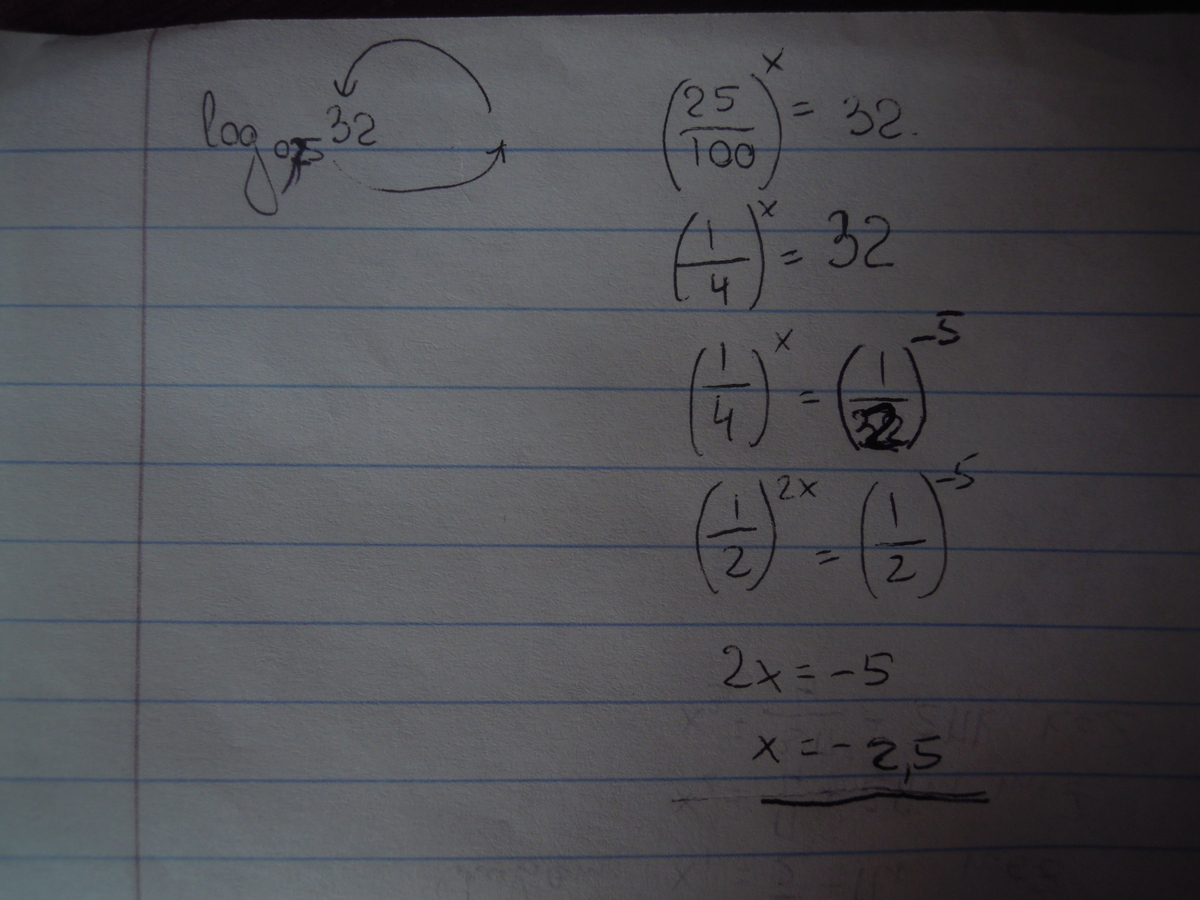 log 32
(25/100)^x = 32.
(1/4)^x = 32
(1/4)^x = (1/2)^-5
(1/2)^2x = (1/2)^-5
2x = -5
x = -2,5